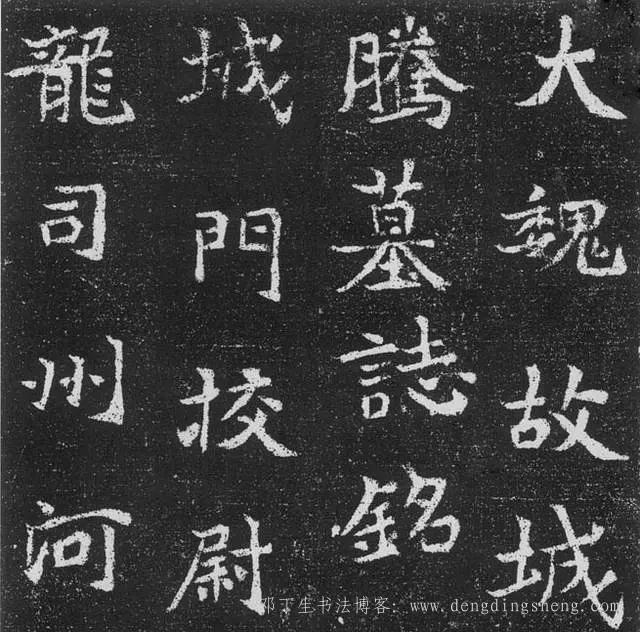 大魏故城
騰墓誌銘
城門挍尉
龍司州河
邓丁生书法博客：www.dengdingsheng.com